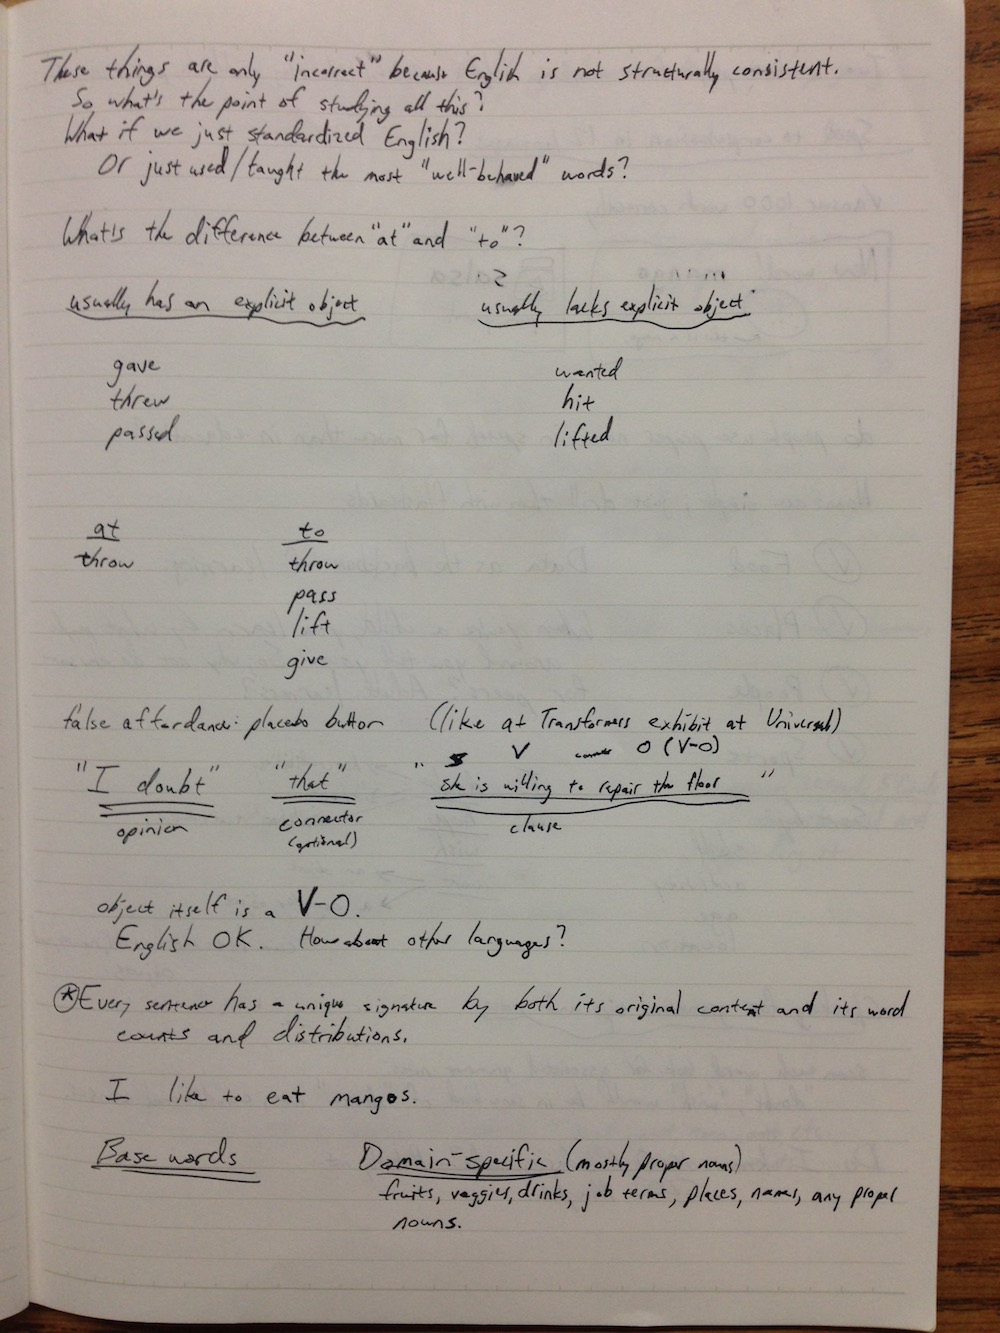 These things are only "incorrect" because English is not structurally consistent.
So what's the point of studying all this?
What if we just standardized English?
Or just used/taught the most "well-behaved" words?
What's the difference between "at" and "to"?
usually has an explicit object
usually lacks explicit object
gave
wanted
threw
hit
passed
lifted
at
to
throw
throw
pass
lift
give
false affordance: placebo button (like at Transformers exhibit at Universal)
S V O (V-O)
"I doubt" "that" "she is willing to repair the floor"
opinion connector clause
(optional)
object itself is a V-O.
English OK. How about other languages?
* Every sentence has a unique signature by both its original content and its word
counts and distributions.
I like to eat mangos.
Base words Domain-specific (mostly proper nouns)
fruits, veggies, drinks, job terms, places, names, any proper
nouns.